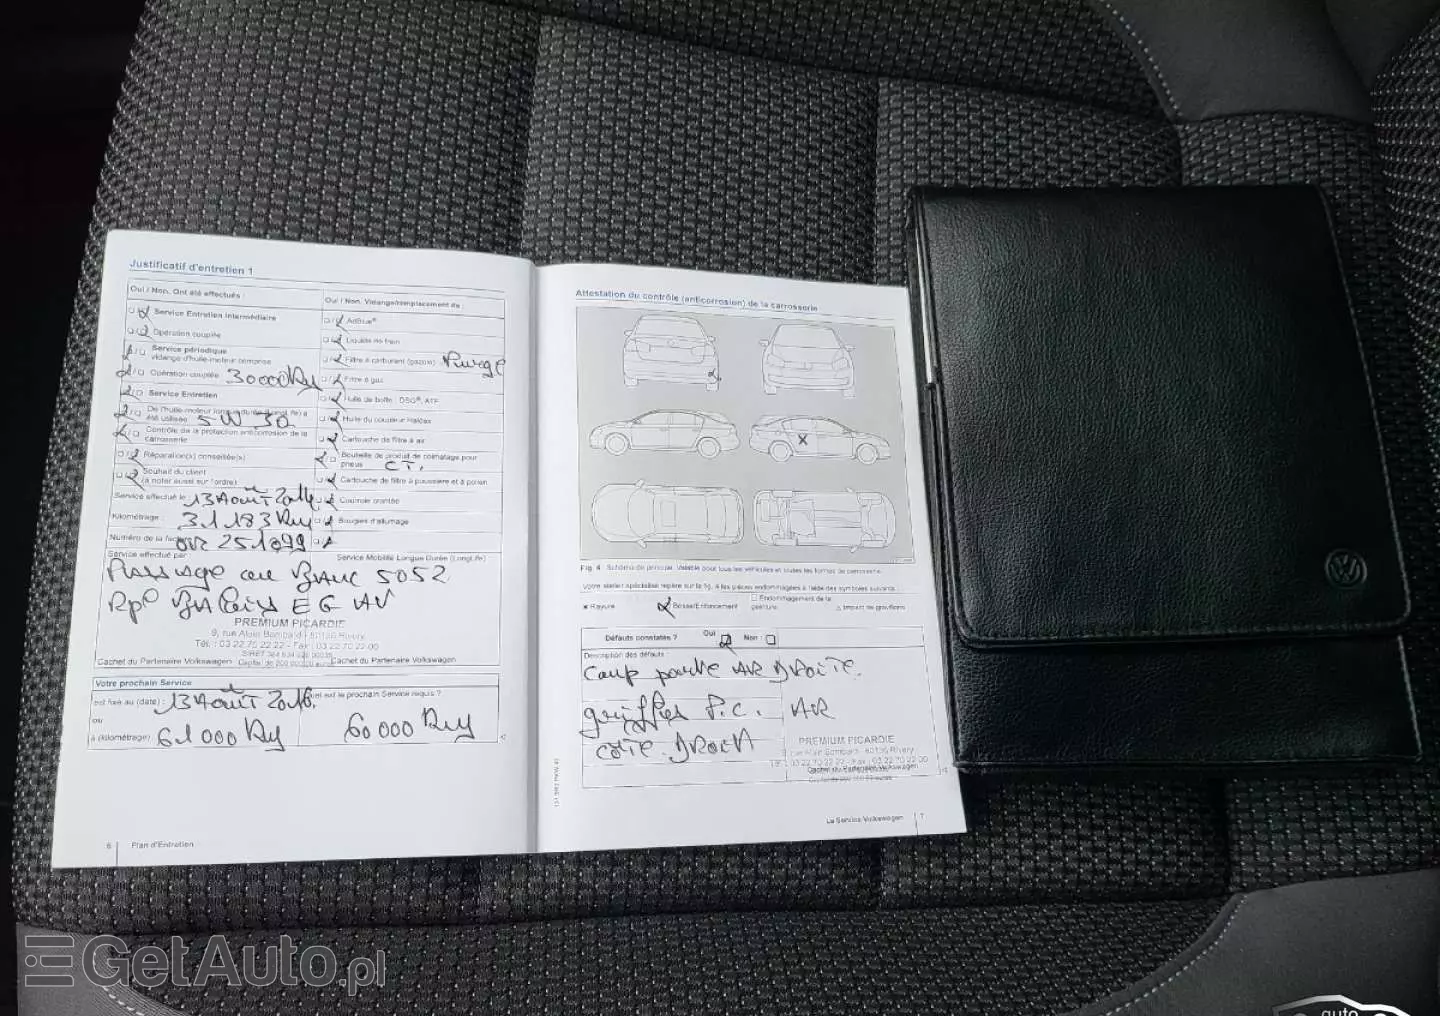 Justificatif d'entretien 1
Oui / Non. Ont été effectués :
Service Entretien Intermédiaire
Opération couplée
Service périodique
vidange d'huile-moteur comprise
Opération couplée 30000 Km
Service Entretien
De l'huile-moteur longue durée (LongLife) a
été utilisée 5W30
Contrôle de la protection anticorrosion de la
carrosserie
Réparation(s) conseillée(s)
Souhait du client
(à noter aussi sur l'ordre)
Service effectué le : 13 Août 2014
Kilométrage : 31183 Km
Numéro de la OR 251099
Oui / Non. Vidange/remplacement de :
AdBlue®
Liquide de frein
Filtre à carburant (gazole) Purge
Filtre à gaz
Huile de boîte : DSG®, ATF
Huile du coupleur Haldex
Cartouche de filtre à air
Bouteille de produit de colmatage pour
pneus C.T.
Cartouche de filtre à poussière et à pollen
Courroie crantée
Bougies d'allumage
Service effectué par Service Mobilité Longue Durée (LongLife)
Passage au Banc 5052
Rpl Balais EG AV
PREMIUM PICARDIE
9, rue Alain Bombard - 80136 Rivery
Tél. : 03 22 70 22 22 - Fax : 03 22 70 22 00
Cachet du Partenaire Volkswagen Cachet du Partenaire Volkswagen
Votre prochain Service
est fixé au (date) : 13 Août 2016.
ou
à (kilométrage) 61000 Km
Quel est le prochain Service requis ?
60000 Km
6 Plan d'Entretien
Attestation du contrôle (anticorrosion) de la carrosserie
X
Fig. 4 Schéma de principe. Valable pour tous les véhicules et toutes les formes de carrosserie.
Votre atelier spécialisé repère sur la fig. 4 les pièces endommagées à l'aide des symboles suivants :
Rayure
Bosse/Enfoncement
Endommagement de la
peinture
Impact de gravillons
Défauts constatés ? Oui Non :
Description des défauts :
Coup porte AR Droite.
griffes P.C. AR
côté Droit
PREMIUM PICARDIE
rue Alain Bombard - 80136 Rivery
Tél. : 03 22 70 22 22 - Fax : 03 22 70 22 00
Cachet du Partenaire Volkswagen
Le Service Volkswagen 7
GetAuto.pl
auto